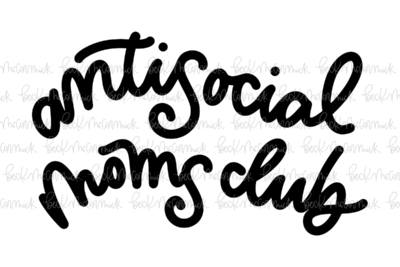 antisocial
moms club